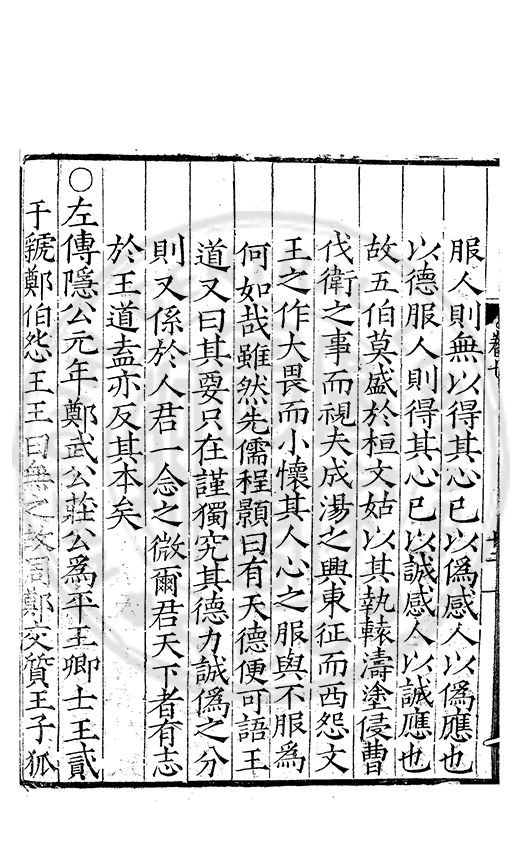 服人則無以得其心已以偽感人以偽應也
以德服人則得其心已以誠感人以誠應也
故五伯莫盛於桓文姑以其執轅濤塗侵曹
伐衛之事而視夫成湯之興東征而西怨文
王之作大畏而小懷其人心之服與不服為
何如哉雖然先儒程顥曰有天德便可語王
道又曰其要只在謹獨究其德力誠偽之分
則又係於人君一念之微爾君天下者有志
於王道盍亦反其本矣
○左傳隱公元年鄭武公莊公為平王卿士王貳
于虢鄭伯怨王王曰無之故周鄭交質王子狐